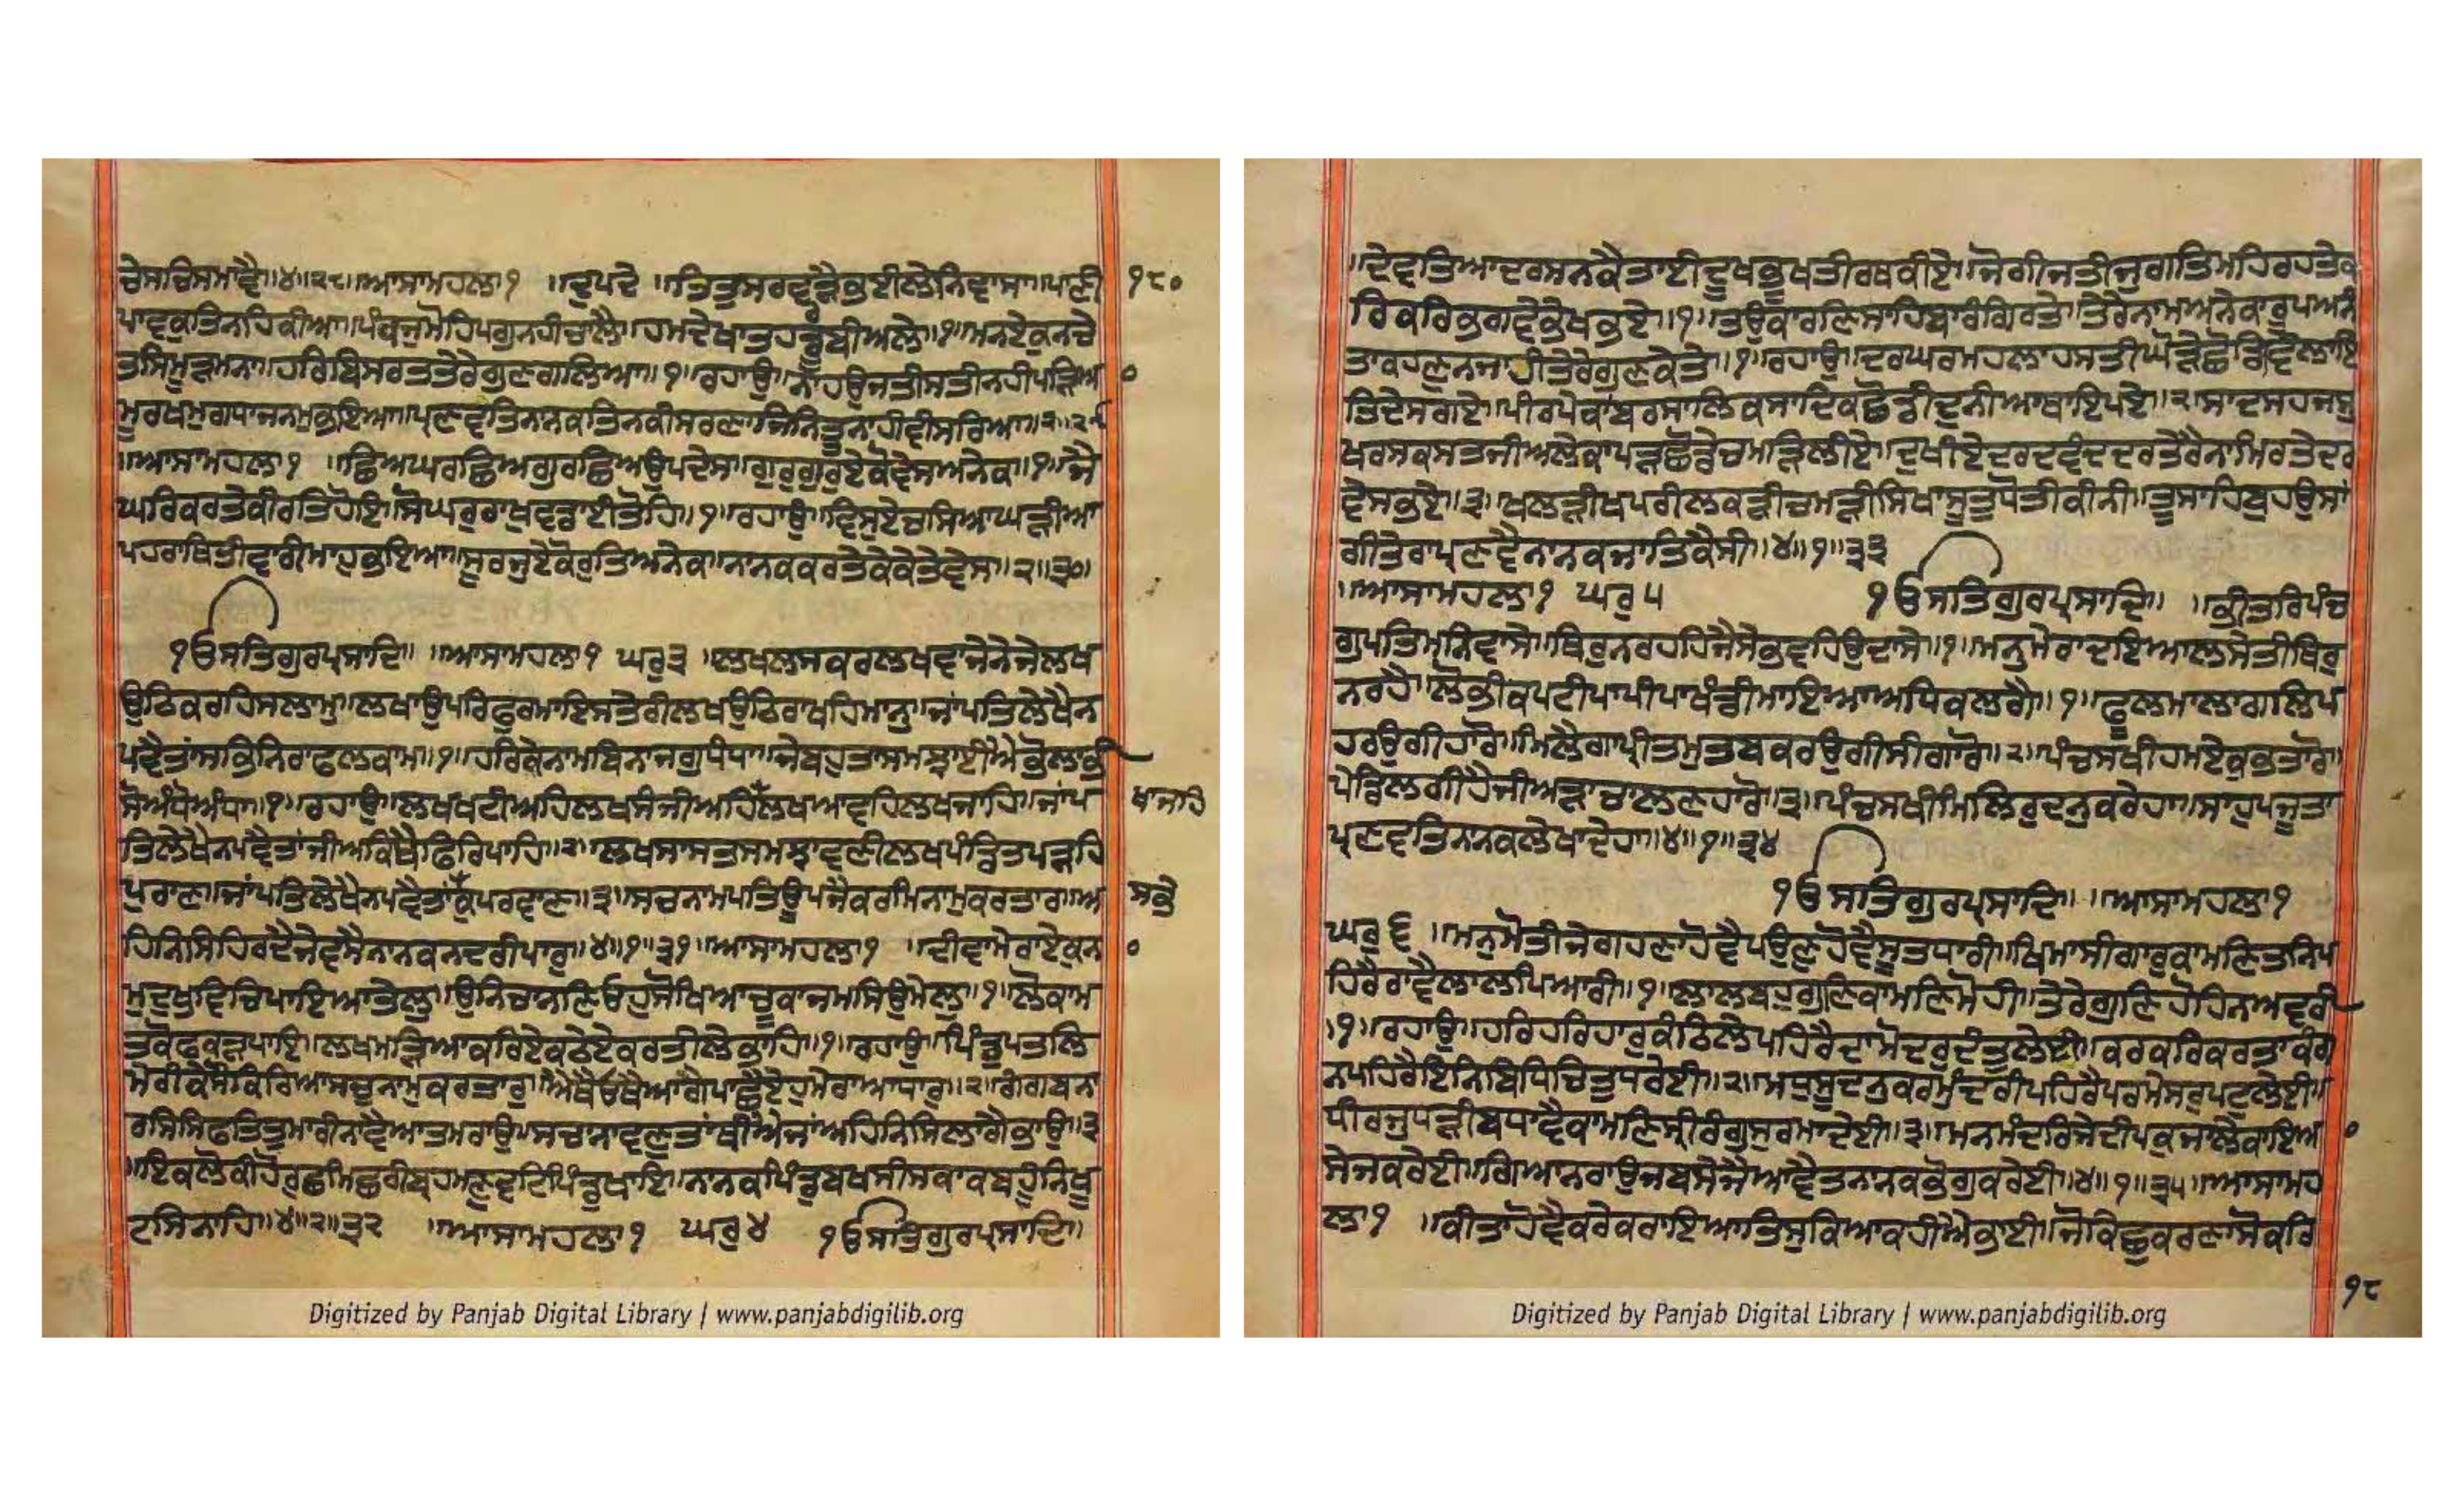 ਚੇਸਚਿਸਮਾਵੈ॥੪॥੨੮॥ਆਸਾਮਹਲਾ੧ ॥ਦੁਪਦੇ ॥ਤਿਤੁਸਰਵੜੈਭਈਲੇਨਿਵਾਸਾ॥ਪਾਣੀ
੧੮੦
ਪਾਵਕੁਤਿਨਹਿਕੀਆ॥ਪੰਕਜੁਮੋਹਪਗੁਨਹੀਚਾਲੈ॥ਹਮਦੇਖਾਤਹਡੂਬੀਅਲੇ॥੧॥ਮਨਏਕੁਨਚੇ
ਤਸਿਮੂੜਮਨਾ॥ਹਰਿਬਿਸਰਤਤੇਰੇਗੁਣਗਲਿਆ॥੧॥ਰਹਾਉ॥ਨਾਹਉਜਤੀਸਤੀਨਹੀਪੜਿਆ
ਮੂਰਖਮੁਗਧਾਜਨਮੁਭਇਆ॥ਪ੍ਰਣਵਤਿਨਾਨਕਤਿਨਕੀਸਰਣਾਜਿਨਤੂੰਨਾਹੀਵੀਸਰਿਆ॥੨॥੨੯
॥ਆਸਾਮਹਲਾ੧ ॥ਛਿਅਘਰਛਿਅਗੁਰਛਿਅਉਪਦੇਸ॥ਗੁਰਗੁਰੁਏਕੋਵੇਸਅਨੇਕ॥੧॥ਜੈ
ਘਰਿਕਰਤੇਕੀਰਤਿਹੋਇ॥ਸੋਘਰੁਰਾਖੁਵਡਾਈਤੋਹਿ॥੧॥ਰਹਾਉ॥ਵਿਸੁਏਚਸਿਆਘੜੀਆ
ਪਹਰਾਥਿਤੀਵਾਰੀਮਾਹੁਭਇਆ॥ਸੂਰਜੁਏਕੋਰੁਤਿਅਨੇਕ॥ਨਾਨਕਕਰਤੇਕੇਕੇਤੇਵੇਸ॥੨॥੩੦॥
੧ਓਸਤਿਗੁਰਪ੍ਰਸਾਦਿ॥ ॥ਆਸਾਮਹਲਾ੧ ਘਰੁ੩ ॥ਲਖਲਸਕਰਲਖਵਾਜੇਨੇਜੇਲਖ
ਉਠਿਕਰਹਿਸਲਾਮੁ॥ਲਖਾਉਪਰਿਫੁਰਮਾਇਸਤੇਰੀਲਖਉਠਿਰਾਖਹਿਮਾਨੁ॥ਜਾਂਪਤਿਲੇਖੈਨ
ਪਵੈਤਾਂਸਭਿਨਿਰਾਫਲਕਾਮ॥੧॥ਹਰਿਕੇਨਾਮਬਿਨਾਜਗੁਧੰਧਾ॥ਜੇਬਹੁਤਾਸਮਝਾਈਐਭੋਲਾਭੀ
ਸੋਅੰਧੋਅੰਧਾ॥੧॥ਰਹਾਉ॥ਲਖਖਟੀਅਹਿਲਖਸੰਜੀਅਹਿਲਖਆਵਹਿਲਖਜਾਹਿ॥ਜਾਂਪ
ਖਾਜਹਿ
ਤਿਲੇਖੈਨਪਵੈਤਾਂਜੀਅਕਿਥੈਫਿਰਿਪਾਹਿ॥੨॥ਲਖਸਾਸਤਸਮਝਾਵਣੀਲਖਪੰਡਿਤਪੜਹਿ
ਪੁਰਾਣ॥ਜਾਂਪਤਿਲੇਖੈਨਪਵੈਤਾਂਕੁਪਰਵਾਣ॥੩॥ਸਚਨਾਮਪਤਿਊਪਜੈਕਰਮਿਨਾਮੁਕਰਤਾਰ॥ਅ
ਸਭੇ
ਹਿਨਿਸਿਹਿਰਦੈਜੇਵਸੈਨਾਨਕਨਦਰੀਪਾਰੁ॥੪॥੧॥੩੧॥ਆਸਾਮਹਲਾ੧ ॥ਦੀਵਾਮੇਰਾਏਕੁਨ
ਮੁਦੁਖੁਵਿਚਿਪਾਇਆਤੇਲੁ॥ਉਨਿਚਾਨਣਿਓਹੁਸੋਖਿਆਚੂਕਾਜਮਸਿਉਮੇਲੁ॥੧॥ਲੋਕਾਮ
ਤਕੋਫਕੜਪਾਇ॥ਲਖਮੜਿਆਕਰਿਏਕਠੇਏਕਰਤੀਲੇਭਾਹਿ॥੧॥ਰਹਾਉ॥ਪਿੰਡੁਪਤਲਿ
ਮੇਰੀਕੇਸੋਕਿਰਿਆਸਚੁਨਾਮੁਕਰਤਾਰੁ॥ਐਥੈਓਥੈਆਗੈਪਾਛੈਏਹੁਮੇਰਾਆਧਾਰੁ॥੨॥ਗੰਗਬਨਾ
ਰਸਿਸਿਫਤਿਤੁਮਾਰੀਨਾਵੈਆਤਮਰਾਉ॥ਸਚਾਨਾਵਣੁਤਾਂਥੀਐਜਾਂਅਹਿਨਿਸਿਲਾਗੈਭਾਉ॥੩
॥ਇਕਲੋਕੀਹੋਰੁਛਮਿਛਰੀਬ੍ਰਹਮਣੁਵਟਿਪਿੰਡੁਖਾਇ॥ਨਾਨਕਪਿੰਡੁਬਖਸੀਸਕਾਕਬਹੂੰਨਿਖੂ
ਟਸਿਨਾਹਿ॥੪॥੨॥੩੨ ॥ਆਸਾਮਹਲਾ੧ ਘਰੁ੪ ੧ਓਸਤਿਗੁਰਪ੍ਰਸਾਦਿ॥
Digitized by Panjab Digital Library | www.panjabdigilib.org
॥ਦੇਵਤਿਆਦਰਸਨਕੈਤਾਈਦੂਖਭੂਖਤੀਰਥਕੀਏ॥ਜੋਗੀਜਤੀਜੁਗਤਿਮਹਿਰਹਤੇਕ
ਰਿਕਰਿਭਗਵੇਭੇਖਭਏ॥੧॥ਤਉਕਾਰਣਿਸਾਹਿਬਾਰੰਗਿਰਤੇ॥ਤੇਰੇਨਾਮਅਨੇਕਾਰੂਪਅਨੰ
ਤਾਕਹਣੁਨਜਾਹੀਤੇਰੇਗੁਣਕੇਤੇ॥੧॥ਰਹਾਉ॥ਦਰਘਰਮਹਲਾਹਸਤੀਘੋੜੇਛੋਡਿਵਿਲਾਇ
ਤਿਦੇਸਗਏ॥ਪੀਰਪੇਕਾਂਬਰਸਾਲਿਕਸਾਦਿਕਛੋਡੀਦੁਨੀਆਥਾਇਪਏ॥੨॥ਸਾਦਸਹਜਸੁ
ਖਰਸਕਸਤਜੀਅਲੇਕਾਪੜਛੋਡੇਚਮੜਿਲੀਏ॥ਦੁਖੀਏਦਰਦਵੰਦਦਰਤੇਰੈਨਾਮਿਰਤੇਦਰ
ਵੇਸਭਏ॥੩॥ਖਲੜੀਖਪਰੀਲਕੜੀਚਮੜੀਸਿਖਾਸੂਤੁਧੋਤੀਕੀਨੀ॥ਤੂਸਾਹਿਬੁਹਉਸਾਂ
ਗੀਤੇਰਾਪ੍ਰਣਵੈਨਾਨਕਜਾਤਿਕੈਸੀ॥੪॥੧॥੩੩
॥ਆਸਾਮਹਲਾ੧ ਘਰੁ੫ ੧ਓਸਤਿਗੁਰਪ੍ਰਸਾਦਿ॥ ॥ਭੀਤਰਿਪੰਚ
ਗੁਪਤਿਮਨਿਵਾਸੇ॥ਥਿਰੁਨਰਹਹਿਜੈਸੇਭਵਹਿਉਦਾਸੇ॥੧॥ਮਨੁਮੇਰਾਦਇਆਲਸੇਤੀਥਿਰੁ
ਨਰਹੈ॥ਲੋਭੀਕਪਟੀਪਾਪੀਪਾਖੰਡੀਮਾਇਆਅਧਿਕਲਗੈ॥੧॥ਫੂਲਮਾਲਾਗਲਿਪ
ਹਰਉਗੀਹਾਰੋ॥ਮਿਲੈਗਾਪ੍ਰੀਤਮੁਤਬਕਰਉਗੀਸੀਗਾਰੋ॥੨॥ਪੰਚਸਖੀਹਮਏਕੁਭਤਾਰੋ
ਪੇਡਿਲਗੀਹੈਜੀਅੜਾਚਾਲਣਹਾਰੋ॥੩॥ਪੰਚਸਖੀਮਿਲਿਰੁਦਨੁਕਰੇਹਾ॥ਸਾਹੁਪਜੂਤਾ
ਪ੍ਰਣਵਤਿਨਾਨਕਲੇਖਾਦੇਹਾ॥੪॥੧॥੩੪
੧ਓਸਤਿਗੁਰਪ੍ਰਸਾਦਿ॥ ॥ਆਸਾਮਹਲਾ੧
ਘਰੁ੬ ॥ਮਨੁਮੋਤੀਜੇਗਹਣਾਹੋਵੈਪਉਣੁਹੋਵੈਸੂਤਧਾਰੀ॥ਖਿਮਾਸੀਗਾਰੁਕਾਮਣਿਤਨਿਪ
ਹਿਰੈਰਾਵੈਲਾਲਪਿਆਰੀ॥੧॥ਲਾਲਬਹੁਗੁਣਿਕਾਮਣਿਮੋਹੀ॥ਤੇਰੇਗੁਣਿਹੋਹਿਨਅਵਰੀ
॥੧॥ਰਹਾਉ॥ਹਰਿਹਰਿਹਾਰੁਕੰਠਿਲੇਪਹਿਰੈਦਾਮੋਦਰੁਦੰਤੁਲੇਈ॥ਕਰਕਰਿਕਰਤਾਕੰਗ
ਨਪਹਿਰੈਇਨਿਬਿਧਿਚਿਤੁਧਰੇਈ॥੨॥ਮਧੁਸੂਦਨੁਕਰਮੁੰਦਰੀਪਹਿਰੈਪਰਮੇਸਰੁਪਟੁਲੇਈ॥
ਧੀਰਜੁਧੜੀਬੰਧਾਵੈਕਾਮਣਿਸ੍ਰੀਰੰਗੁਸੁਰਮਾਦੇਈ॥੩॥ਮਨਮੰਦਰਿਜੇਦੀਪਕੁਜਾਲੇਕਾਇਆ
ਸੇਜਕਰੇਈ॥ਗਿਆਨਰਾਉਜਬਸੇਜੈਆਵੈਤਨਾਨਕਭੋਗੁਕਰੇਈ॥੪॥੧॥੩੫॥ਆਸਾਮਹ
ਲਾ੧ ॥ਕੀਤਾਹੋਵੈਕਰੇਕਰਾਇਆਤਿਸੁਕਿਆਕਹੀਐਭਾਈ॥ਜੋਕਿਛੁਕਰਣਾਸੋਕਰਿ
੧੮
Digitized by Panjab Digital Library | www.panjabdigilib.org